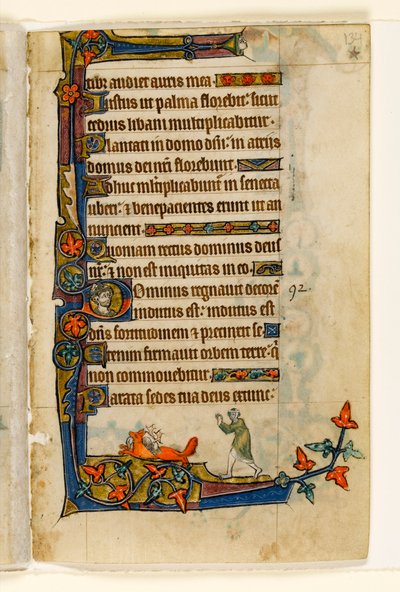 134
tib; audiet auris mea.
Iustus ut palma florebit: sicut
cedrus libani multiplicabitur.
Plantati in domo dñi: in atrijs
domus dei nr̃i florebunt.
Adhuc mltiplicabunt̃ in senecta
uberi: ⁊ bene pacientes erunt ut an
nuncient.
Quoniam rectus dominus deus
nr̃: ⁊ non est iniquitas in eo.
Dominus regnauit decorẽ
92.
indutus est: indutus est
dñs fortitudinem ⁊ precinxit se.
Etenim firmauit orbem terre: q̃
non commouebitur.
Parata sedes tua deus ex tunc: